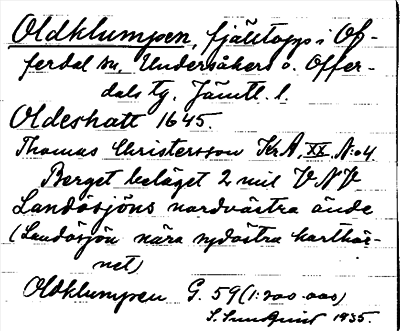 Oldklumpen, fjälltopp i Of-
ferdal sn. Undersåkers o. Offer-
dals tg. Jämtl. l.
Oldeshatt 1645.
Thomas Christersson KrA, XX, N:o 4
Berget beläget 2 mil VNV
Landösjöns nordvästra ände
(Landösjön nära sydöstra karthör-
net)
Oldklumpen G. 59 (1:200.000)
S. Sundqvist 1935.